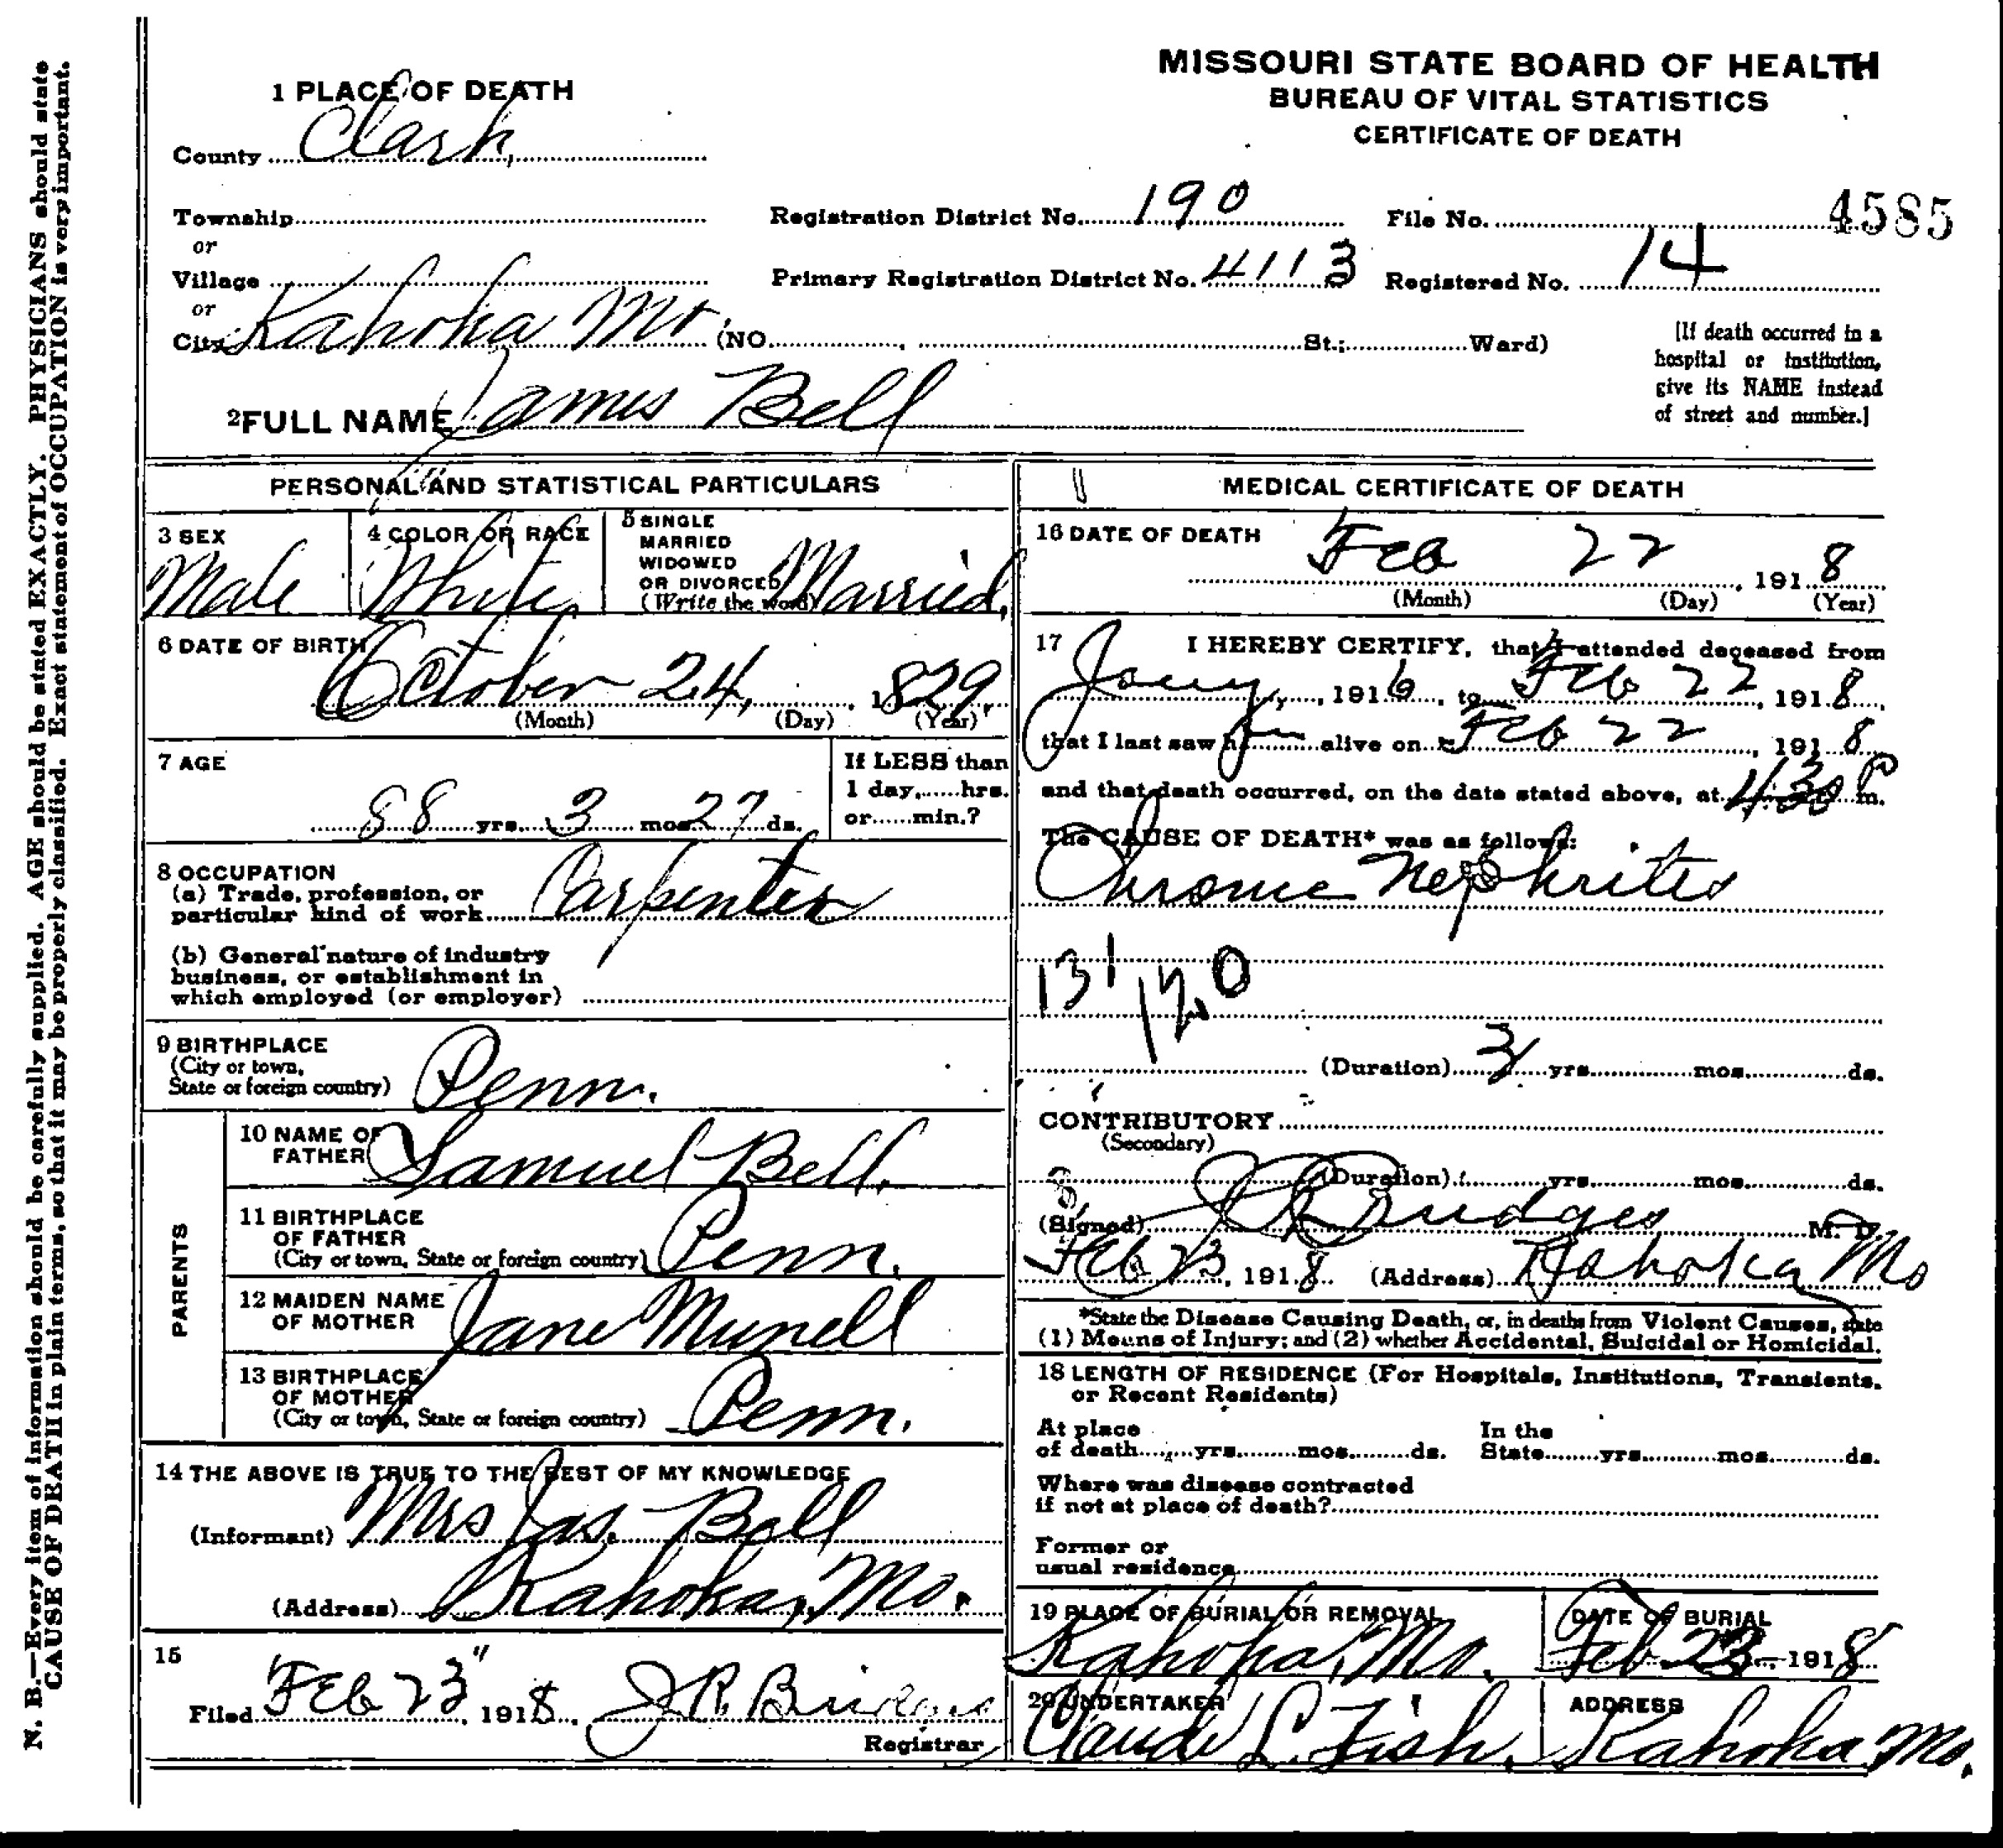 MISSOURI STATE BOARD OF HEALTH
BUREAU OF VITAL STATISTICS
CERTIFICATE OF DEATH
1 PLACE OF DEATH
County Clark,
Township
or
Village
or
City Kahoka Mo. (NO. St.; Ward)
Registration District No. 190
File No. 4585
Primary Registration District No. 4113
Registered No. 14
[If death occurred in a
hospital or institution,
give its NAME instead
of street and number.]
2 FULL NAME James Bell
PERSONAL AND STATISTICAL PARTICULARS
3 SEX
Male
4 COLOR OR RACE
White,
5 SINGLE
MARRIED
WIDOWED
OR DIVORCED
(Write the word) Married,
6 DATE OF BIRTH
October 24, , 1829,
(Month) (Day) (Year)
7 AGE
88 yrs. 3 mos 27 ds.
If LESS than
1 day, hrs.
or min.?
8 OCCUPATION
(a) Trade, profession, or
particular kind of work Carpenter
(b) General nature of industry
business, or establishment in
which employed (or employer)
9 BIRTHPLACE
(City or town,
State or foreign country) Penn.
PARENTS
10 NAME OF
FATHER Samuel Bell,
11 BIRTHPLACE
OF FATHER
(City or town, State or foreign country) Penn.
12 MAIDEN NAME
OF MOTHER Jane Munell
13 BIRTHPLACE
OF MOTHER
(City or town, State or foreign country) Penn.
14 THE ABOVE IS TRUE TO THE BEST OF MY KNOWLEDGE
(Informant) Mrs Jas. Bell
(Address) Kahoka, Mo.
15
Filed Feb 23", 1918, J.R. Bridges
Registrar
MEDICAL CERTIFICATE OF DEATH
16 DATE OF DEATH
Feb 22, 1918
(Month) (Day) (Year)
17 I HEREBY CERTIFY, that I attended deceased from
Jany, 1916, to Feb 22, 1918,
that I last saw him alive on Feb 22, 1918
and that death occurred, on the date stated above, at 4:30 P m.
The CAUSE OF DEATH* was as follows:
Chronic Nephritis
131 120
(Duration) 3 yrs. mos. ds.
CONTRIBUTORY
(Secondary)
(Duration) yrs. mos. ds.
(Signed) J R Bridges M. D.
Feb 23, 1918 (Address) Kahoka Mo
*State the Disease Causing Death, or, in deaths from Violent Causes, state
(1) Means of Injury; and (2) whether Accidental, Suicidal or Homicidal.
18 LENGTH OF RESIDENCE (For Hospitals, Institutions, Transients,
or Recent Residents)
At place
of death yrs. mos. ds.
In the
State yrs. mos. ds.
Where was disease contracted
if not at place of death?
Former or
usual residence
19 PLACE OF BURIAL OR REMOVAL
Kahoka, Mo.
DATE OF BURIAL
Feb 23 1918
20 UNDERTAKER
Claude L. Fish,
ADDRESS
Kahoka Mo.
N. B.—Every item of information should be carefully supplied. AGE should be stated EXACTLY. PHYSICIANS should state
CAUSE OF DEATH in plain terms, so that it may be properly classified. Exact statement of OCCUPATION is very important.